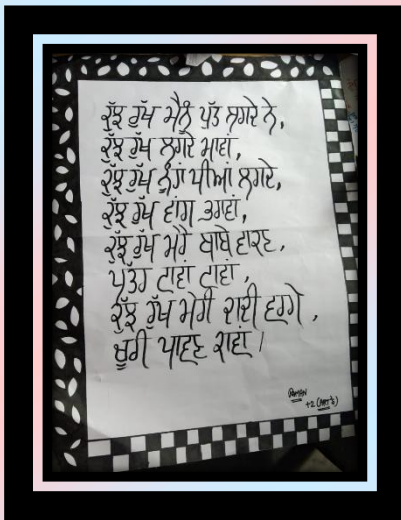 ਕੁੱਝ ਰੁੱਖ ਮੈਨੂੰ ਪੁੱਤ ਲਗਦੇ ਨੇ,
ਕੁੱਝ ਰੁੱਖ ਲਗਦੇ ਮਾਵਾਂ,
ਕੁੱਝ ਰੁੱਖ ਨੂੰਹਾਂ ਧੀਆਂ ਲਗਦੇ,
ਕੁੱਝ ਰੁੱਖ ਵਾਂਗ ਭਰਾਵਾਂ,
ਕੁੱਝ ਰੁੱਖ ਮੇਰੇ ਬਾਬੇ ਵਾਕਣ,
ਪੱਤਰ ਟਾਵਾਂ ਟਾਵਾਂ,
ਕੁੱਝ ਰੁੱਖ ਮੇਰੀ ਦਾਦੀ ਵਰਗੇ,
ਚੂਰੀ ਪਾਵਣ ਕਾਵਾਂ।
+2